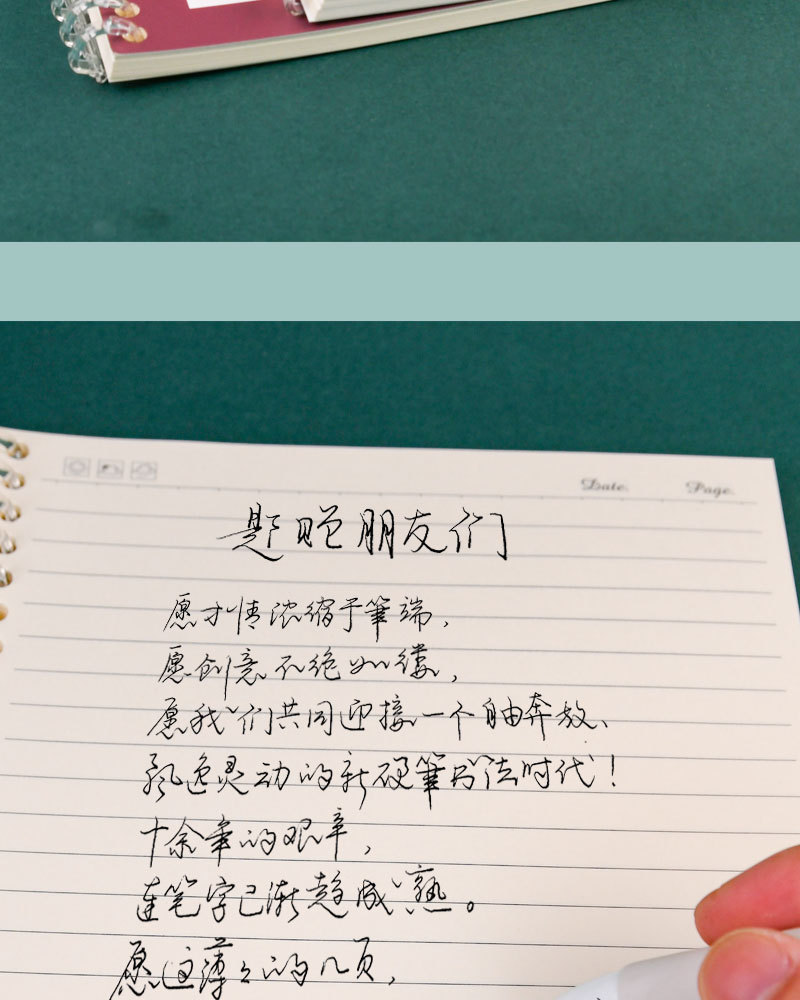 Date.
Page.
题赠朋友们
愿才情浓缩于筆端，
愿创意不绝如缕，
愿我们共同迎接一个自由奔放、
飘逸灵动的新硬筆书法时代！
十余年的艰辛，
连笔字已渐趋成熟。
愿这薄々的几页，